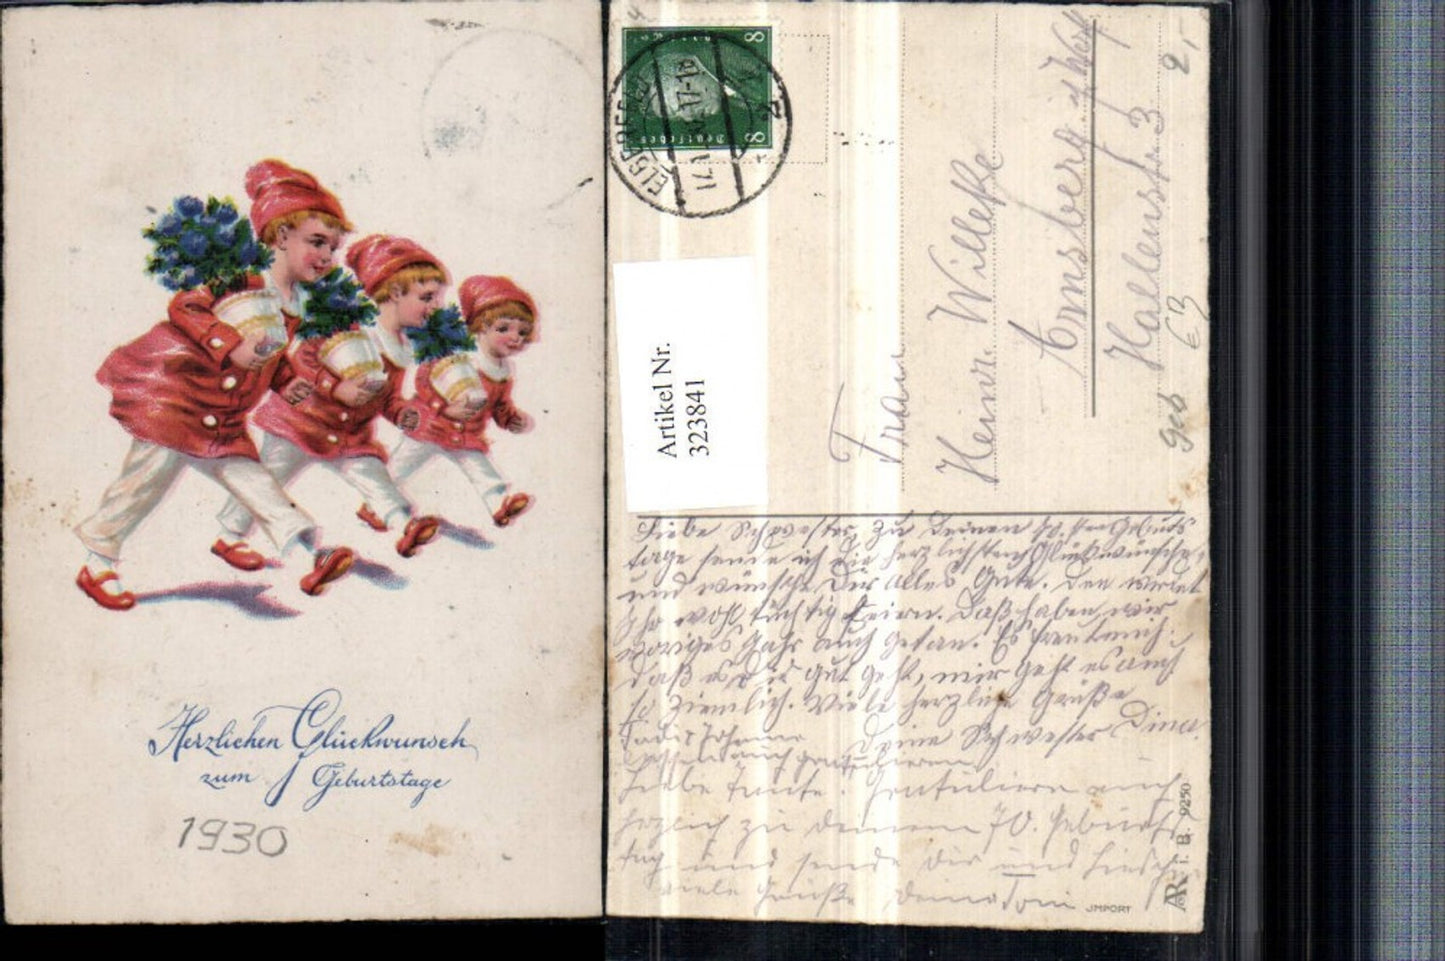 Herzlichen Glückwunsch
zum Geburtstage
1930
8 8
Deutsches
ELBERFELD
17-1
Artikel Nr.
323841
Frau
Heinr. Willeke
Arnsberg i/Westf
Hallenstr. 3
2,-
geb
EB
Liebe Schwester, zu deinem 70. Geburts
tage sende ich die herzlichsten Glückwünsche,
und wünsche Dir alles Gute. Den werdet
Ihr wohl tüchtig feiern. Daß haben wir
voriges Jahr auch getan. Es freut mich
daß es Dir gut geht, mir geht es auch
so ziemlich. Viele herzliche Grüße
Deine Schwester Dina.
auch gratulieren
Liebe Tante. Gratuliere auch
herzlich zu deinem 70. Geburts
tag und sende Dir und
viele Grüße
JMPORT
AR i. B. 9250